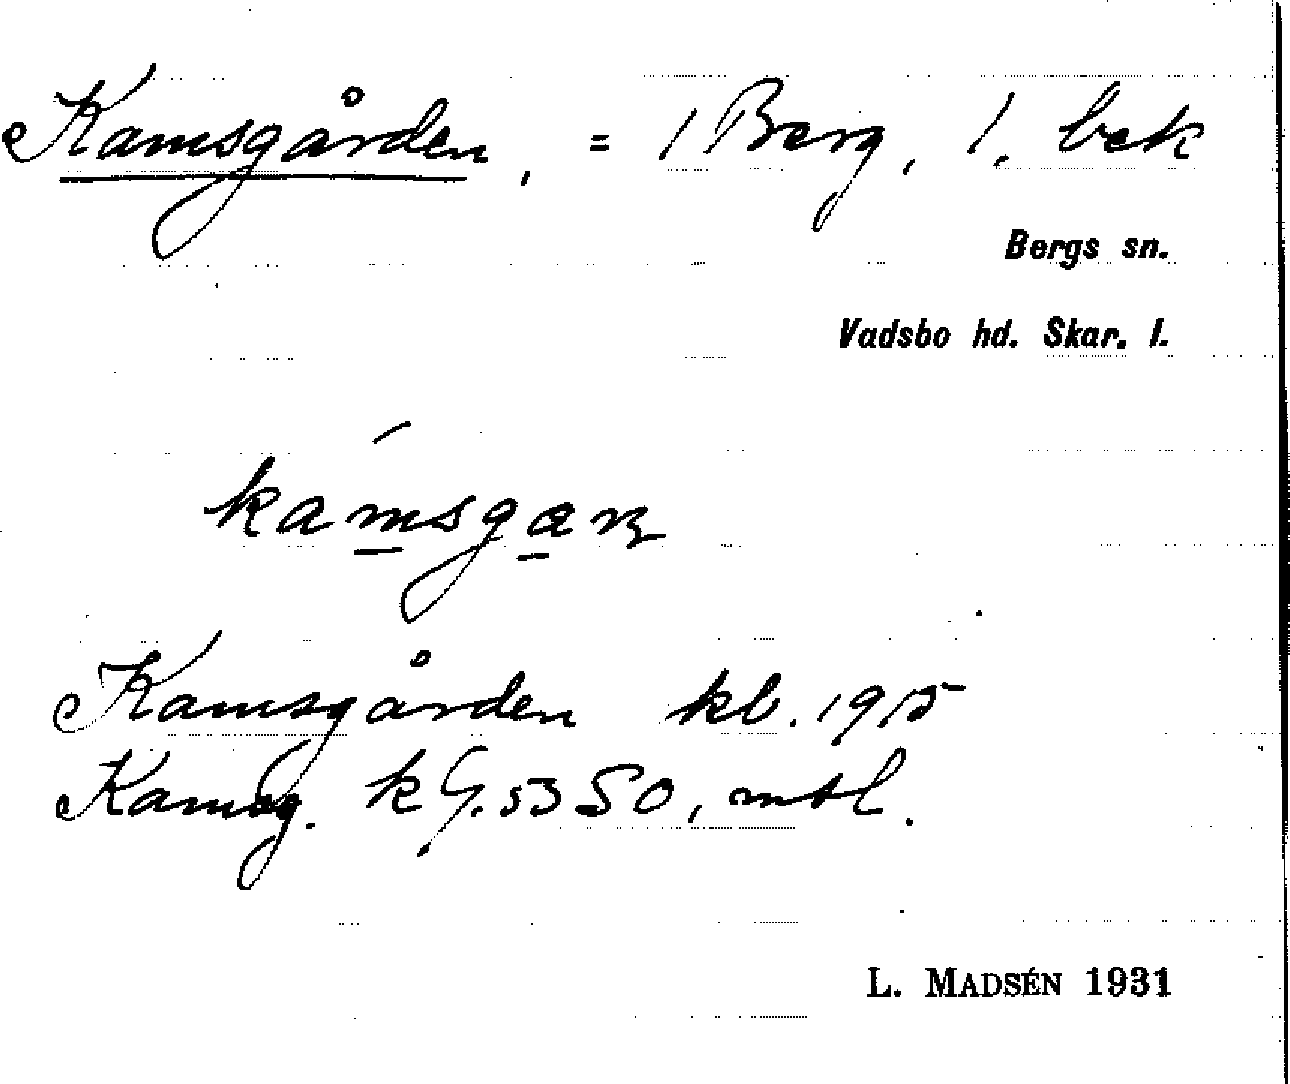 Kamsgården, = 1 Berg, 1. bek
Bergs sn.
Vadsbo hd. Skar. l.
kamsgaɳ
Kamsgården kb. 1915
Kamsg. k G. 53 SO, mtl.
L. MADSÉN 1931